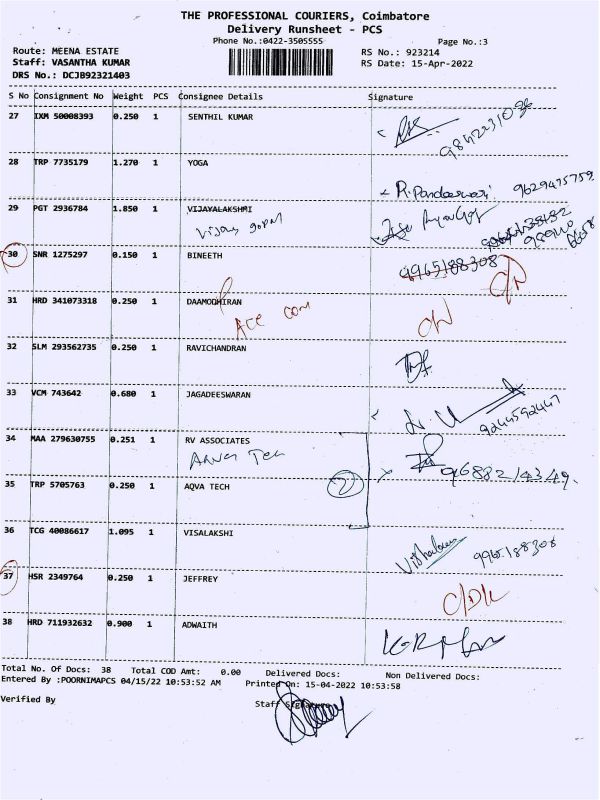 THE PROFESSIONAL COURIERS, Coimbatore
Delivery Runsheet - PCS
Phone No.:0422-3505555
Page No.:3
Route: MEENA ESTATE
RS No.: 923214
Staff: VASANTHA KUMAR
RS Date: 15-Apr-2022
DRS No.: DCJB92321403
S No Consignment No Weight PCS Consignee Details Signature
27 IXM 50008393 0.250 1 SENTHIL KUMAR
9842231036
28 TRP 7735179 1.270 1 YOGA
9629475759
29 PGT 2936784 1.850 1 VIJAYALAKSHMI
Vijay gopal
30 SNR 1275297 0.150 1 BINEETH
9965188308
31 HRD 341073318 0.250 1 DAAMODHIRAN
ACE COM
32 SLM 293562735 0.250 1 RAVICHANDRAN
33 VCM 743642 0.680 1 JAGADEESWARAN
9244592447
34 MAA 279630755 0.251 1 RV ASSOCIATES
Aqva Tec
2
9688214349.
35 TRP 5705763 0.250 1 AQVA TECH
36 TCG 40086617 1.095 1 VISALAKSHI
9965188308
37 HSR 2349764 0.250 1 JEFFREY
38 HRD 711932632 0.900 1 ADWAITH
Total No. Of Docs: 38 Total COD Amt: 0.00 Delivered Docs: Non Delivered Docs:
Entered By :POORNIMAPCS 04/15/22 10:53:52 AM Printed On: 15-04-2022 10:53:58
Verified By Staff Signature